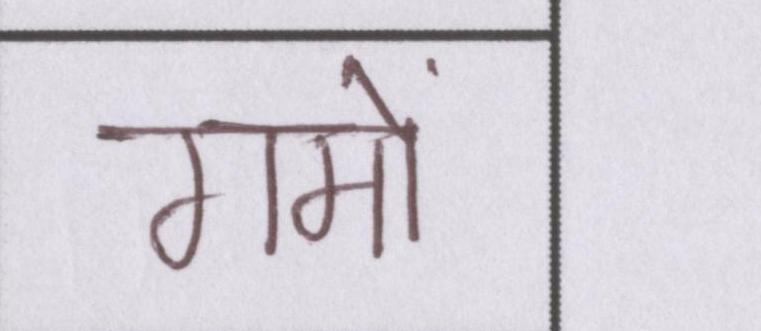 गमों